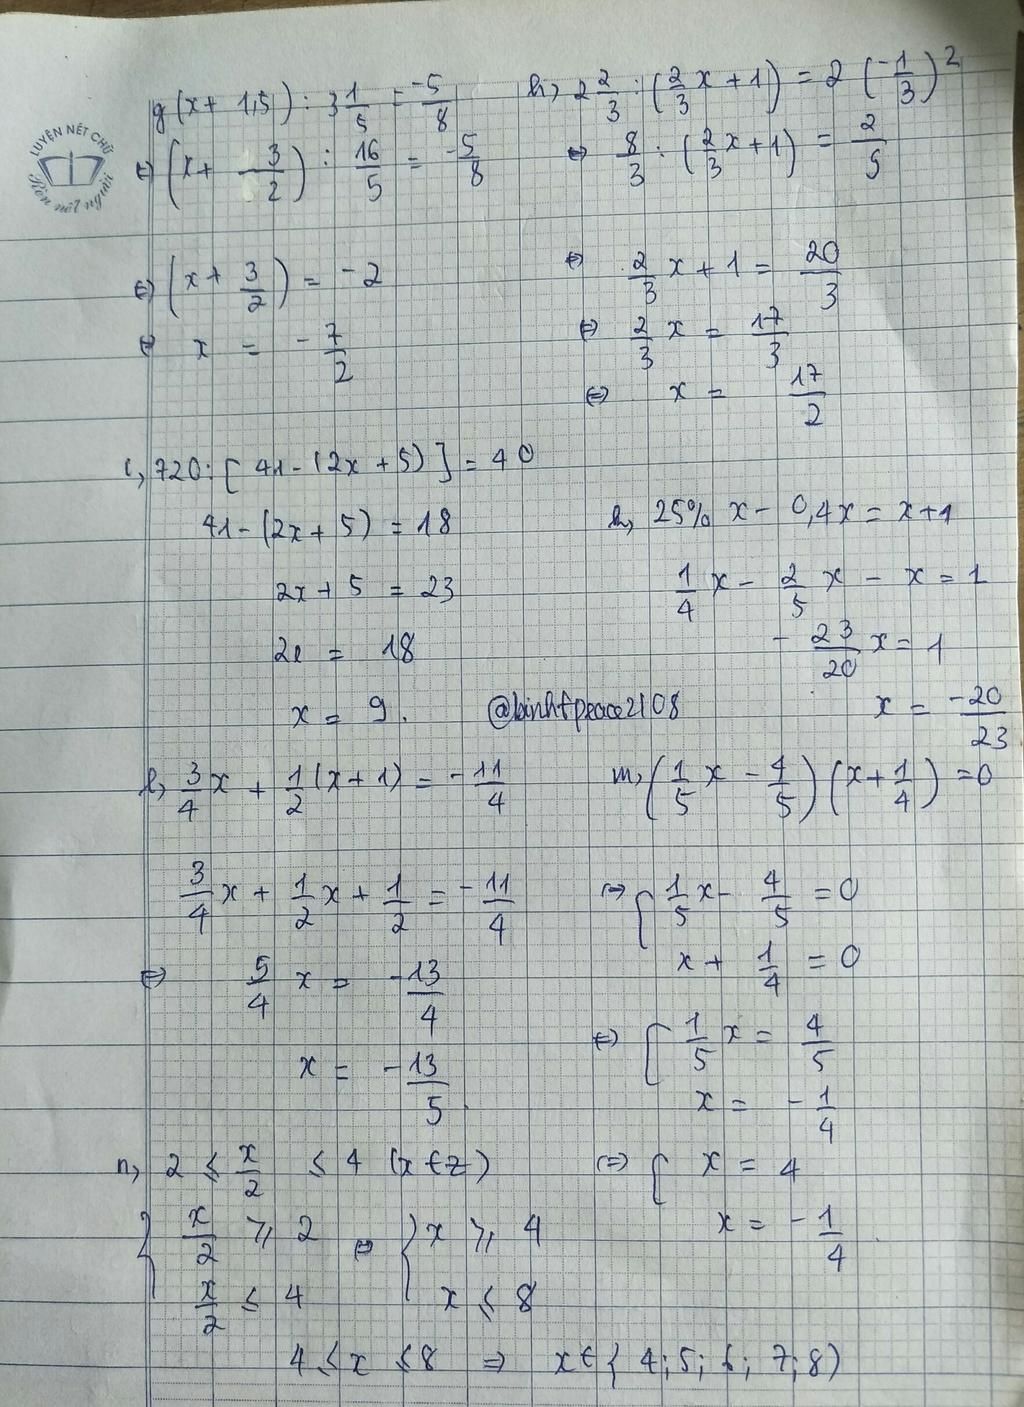 LUYỆN NÉT CHỮ
Rèn nết người
g (x + 1,5) : 3 1/5 = -5/8
⇔ (x + 3/2) : 16/5 = -5/8
⇔ (x + 3/2) = -2
⇔ x = -7/2
h, 2 2/3 : (2/3 x + 1) = 2 (-1/3)²
⇔ 8/3 : (2/3 x + 1) = 2/5
⇔ 2/3 x + 1 = 20/3
⇔ 2/3 x = 17/3
⇔ x = 17/2
i, 720 : [41 - (2x + 5)] = 40
41 - (2x + 5) = 18
2x + 5 = 23
2x = 18
x = 9.
k, 25% x - 0,4x = x + 1
1/4 x - 2/5 x - x = 1
- 23/20 x = 1
x = -20/23
@binhtpeace2108
l, 3/4 x + 1/2 (x + 1) = -11/4
3/4 x + 1/2 x + 1/2 = -11/4
⇔ 5/4 x = -13/4
x = -13/5
m, (1/5 x - 4/5) (x + 1/4) = 0
⇔ [ 1/5 x - 4/5 = 0
x + 1/4 = 0
⇔ [ 1/5 x = 4/5
x = -1/4
⇔ [ x = 4
x = -1/4
n, 2 ≤ x/2 ≤ 4 (x ∈ z)
{ x/2 ≥ 2 ⇔ { x ≥ 4
x/2 ≤ 4 x ≤ 8
4 ≤ x ≤ 8 ⇒ x ∈ { 4; 5; 6; 7; 8)